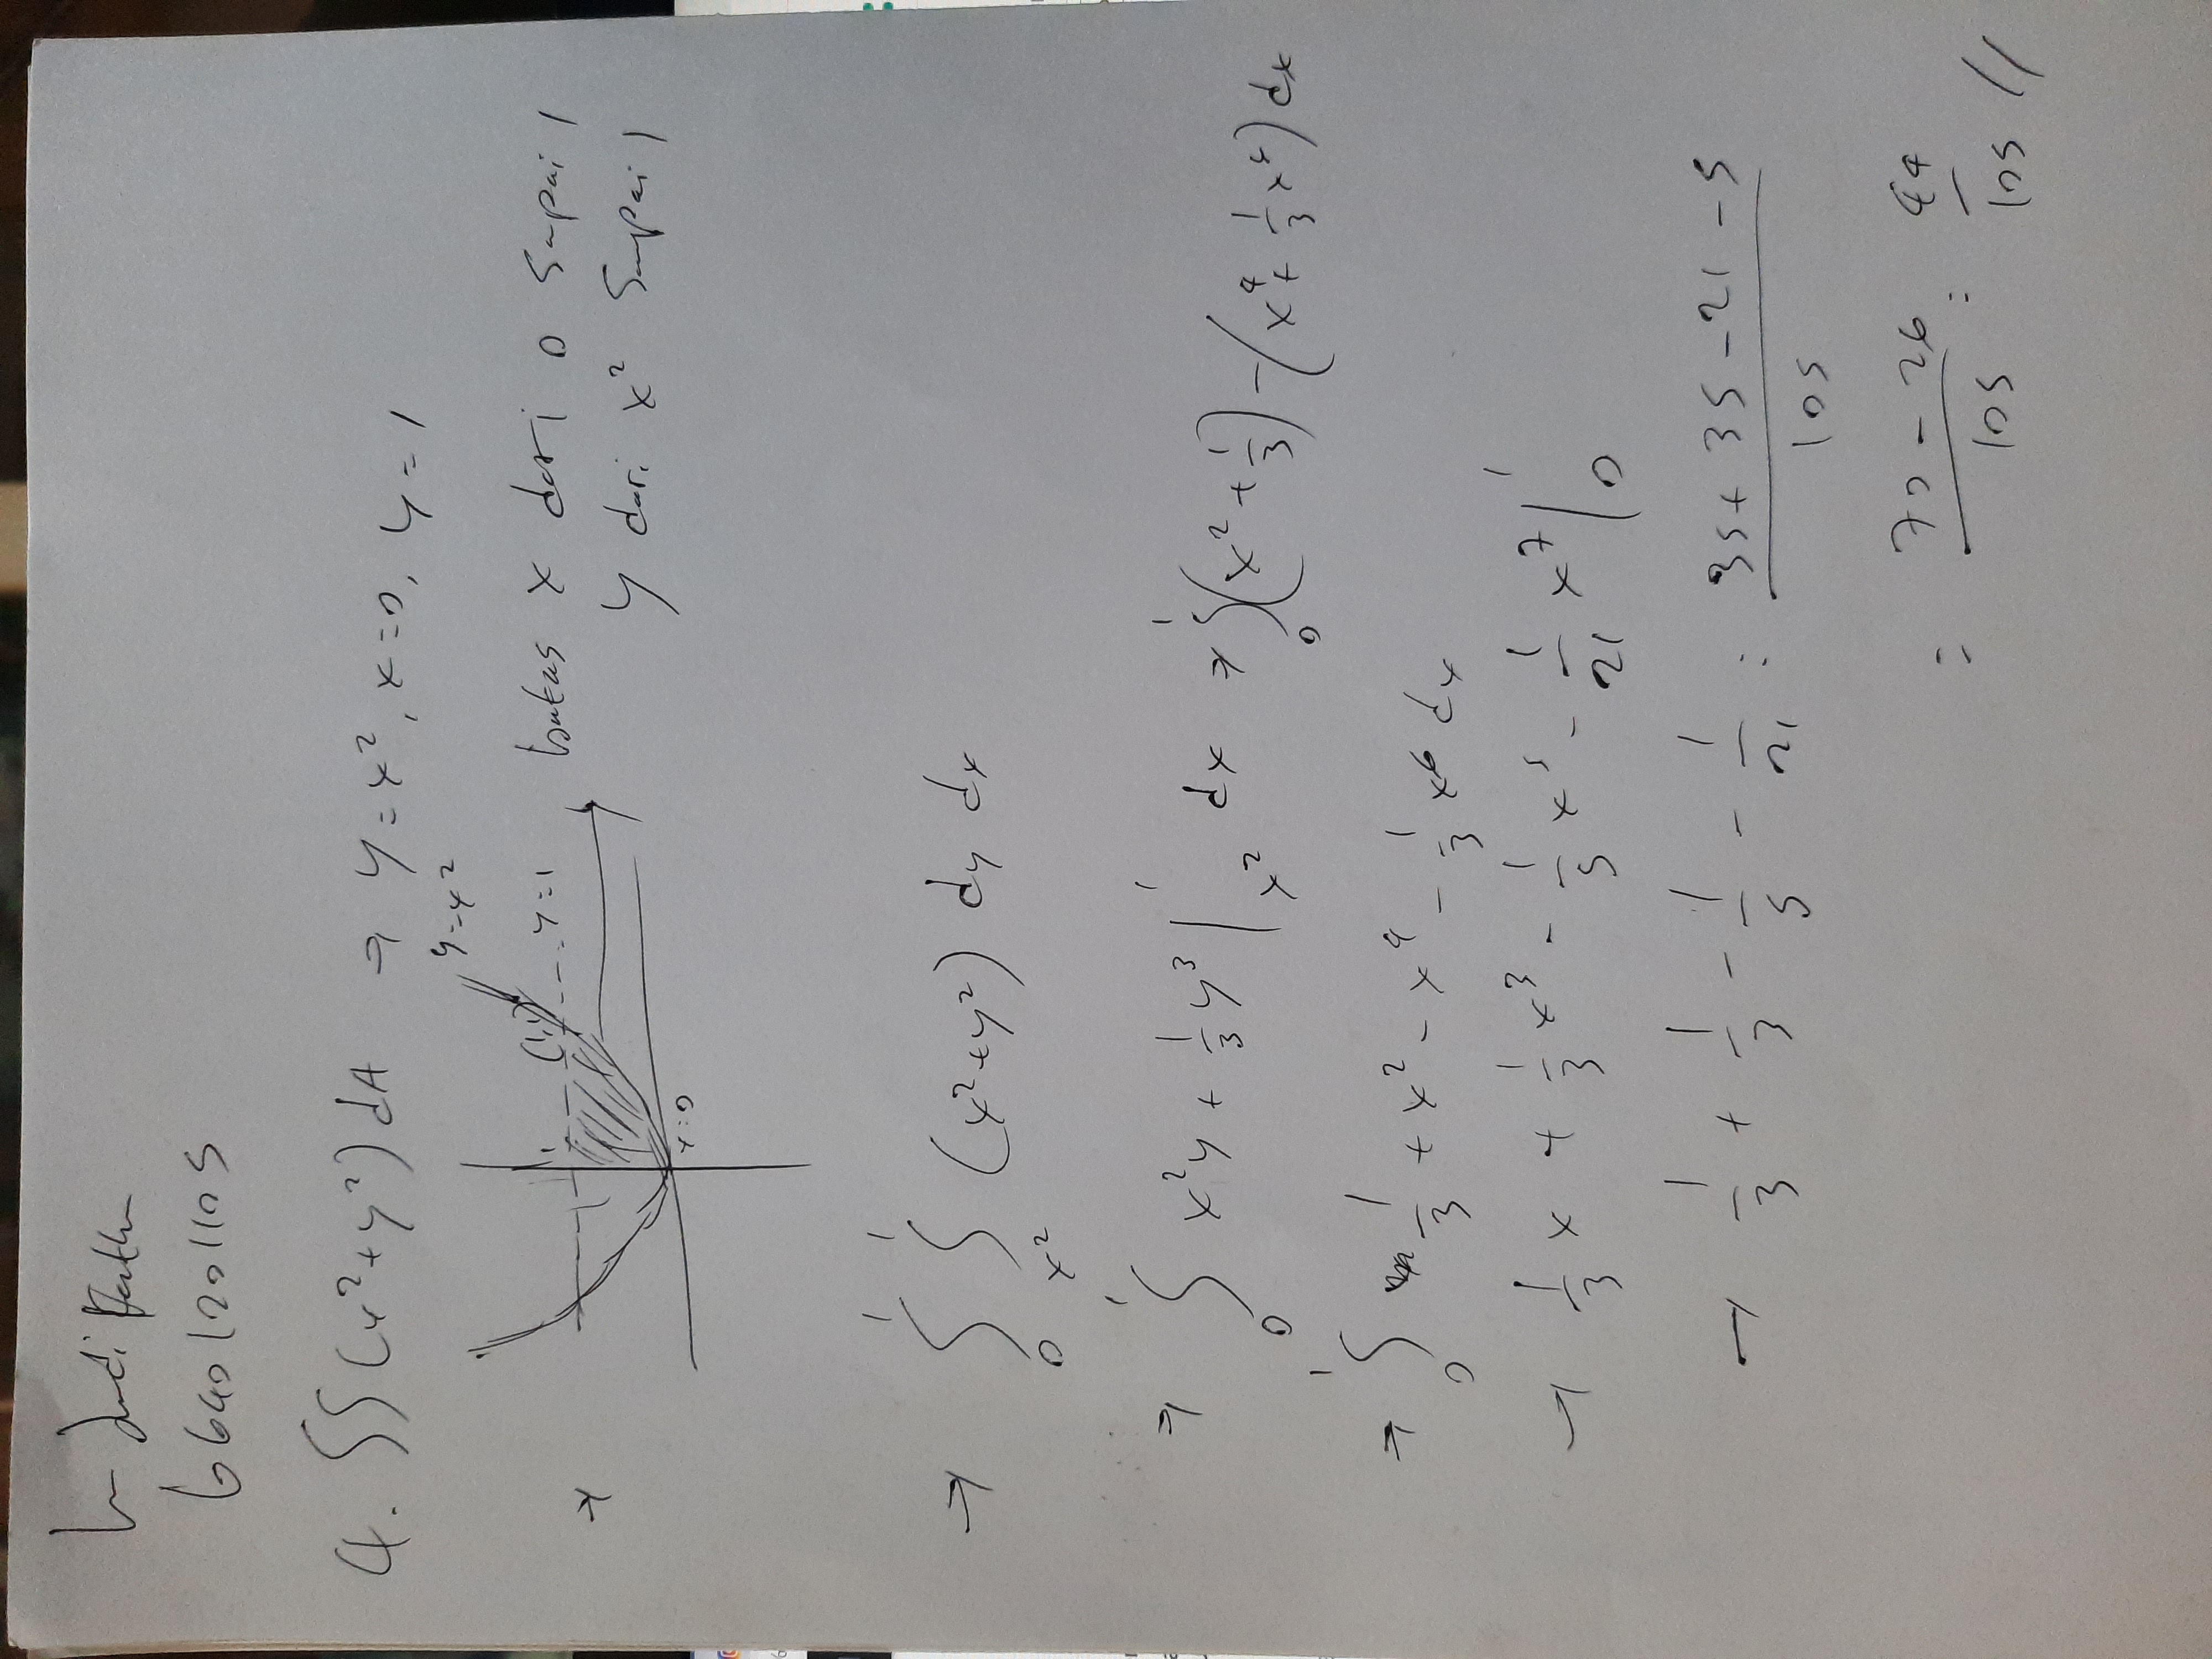 66401201105
4. ∫∫ (x²+y²) dA → y = x², x=0, y = 1
y=x²
1 (1,1) y=1
x=0
batas x dari 0 sampai 1
y dari x² sampai 1
→ ∫₀¹ ∫ₓ²¹ (x²+y²) dy dx
→ ∫₀¹ x²y + 1/3 y³ |ₓ²¹ dx → ∫₀¹ (x² + 1/3) - (x⁴ + 1/3 x⁶) dx
→ ∫₀¹ 1/3 + x² - x⁴ - 1/3 x⁶ dx
→ 1/3 x + 1/3 x³ - 1/5 x⁵ - 1/21 x⁷ |₀¹
→ 1/3 + 1/3 - 1/5 - 1/21 = (35 + 35 - 21 - 5)/105
= (70 - 26)/105 = 44/105 //